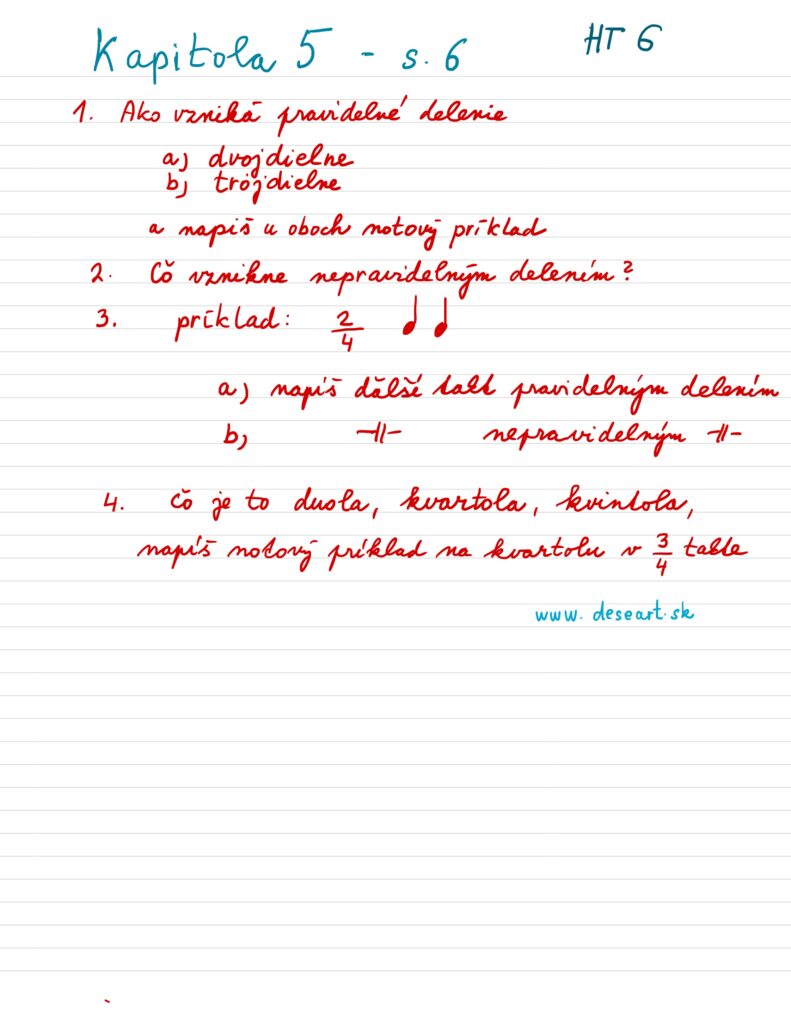 Kapitola 5 - s. 6
HT 6
1. Ako vzniká pravidelné delenie
a) dvojdielne
b) trojdielne
a napíš u oboch notový príklad
2. Čo vznikne nepravidelným delením?
3. príklad: 2/4
a) napíš ďalšé takt pravidelným delením
b) -||- nepravidelným -||-
4. čo je to duola, kvartola, kvintola,
napíš notový príklad na kvartolu v 3/4 takte
www.deseart.sk